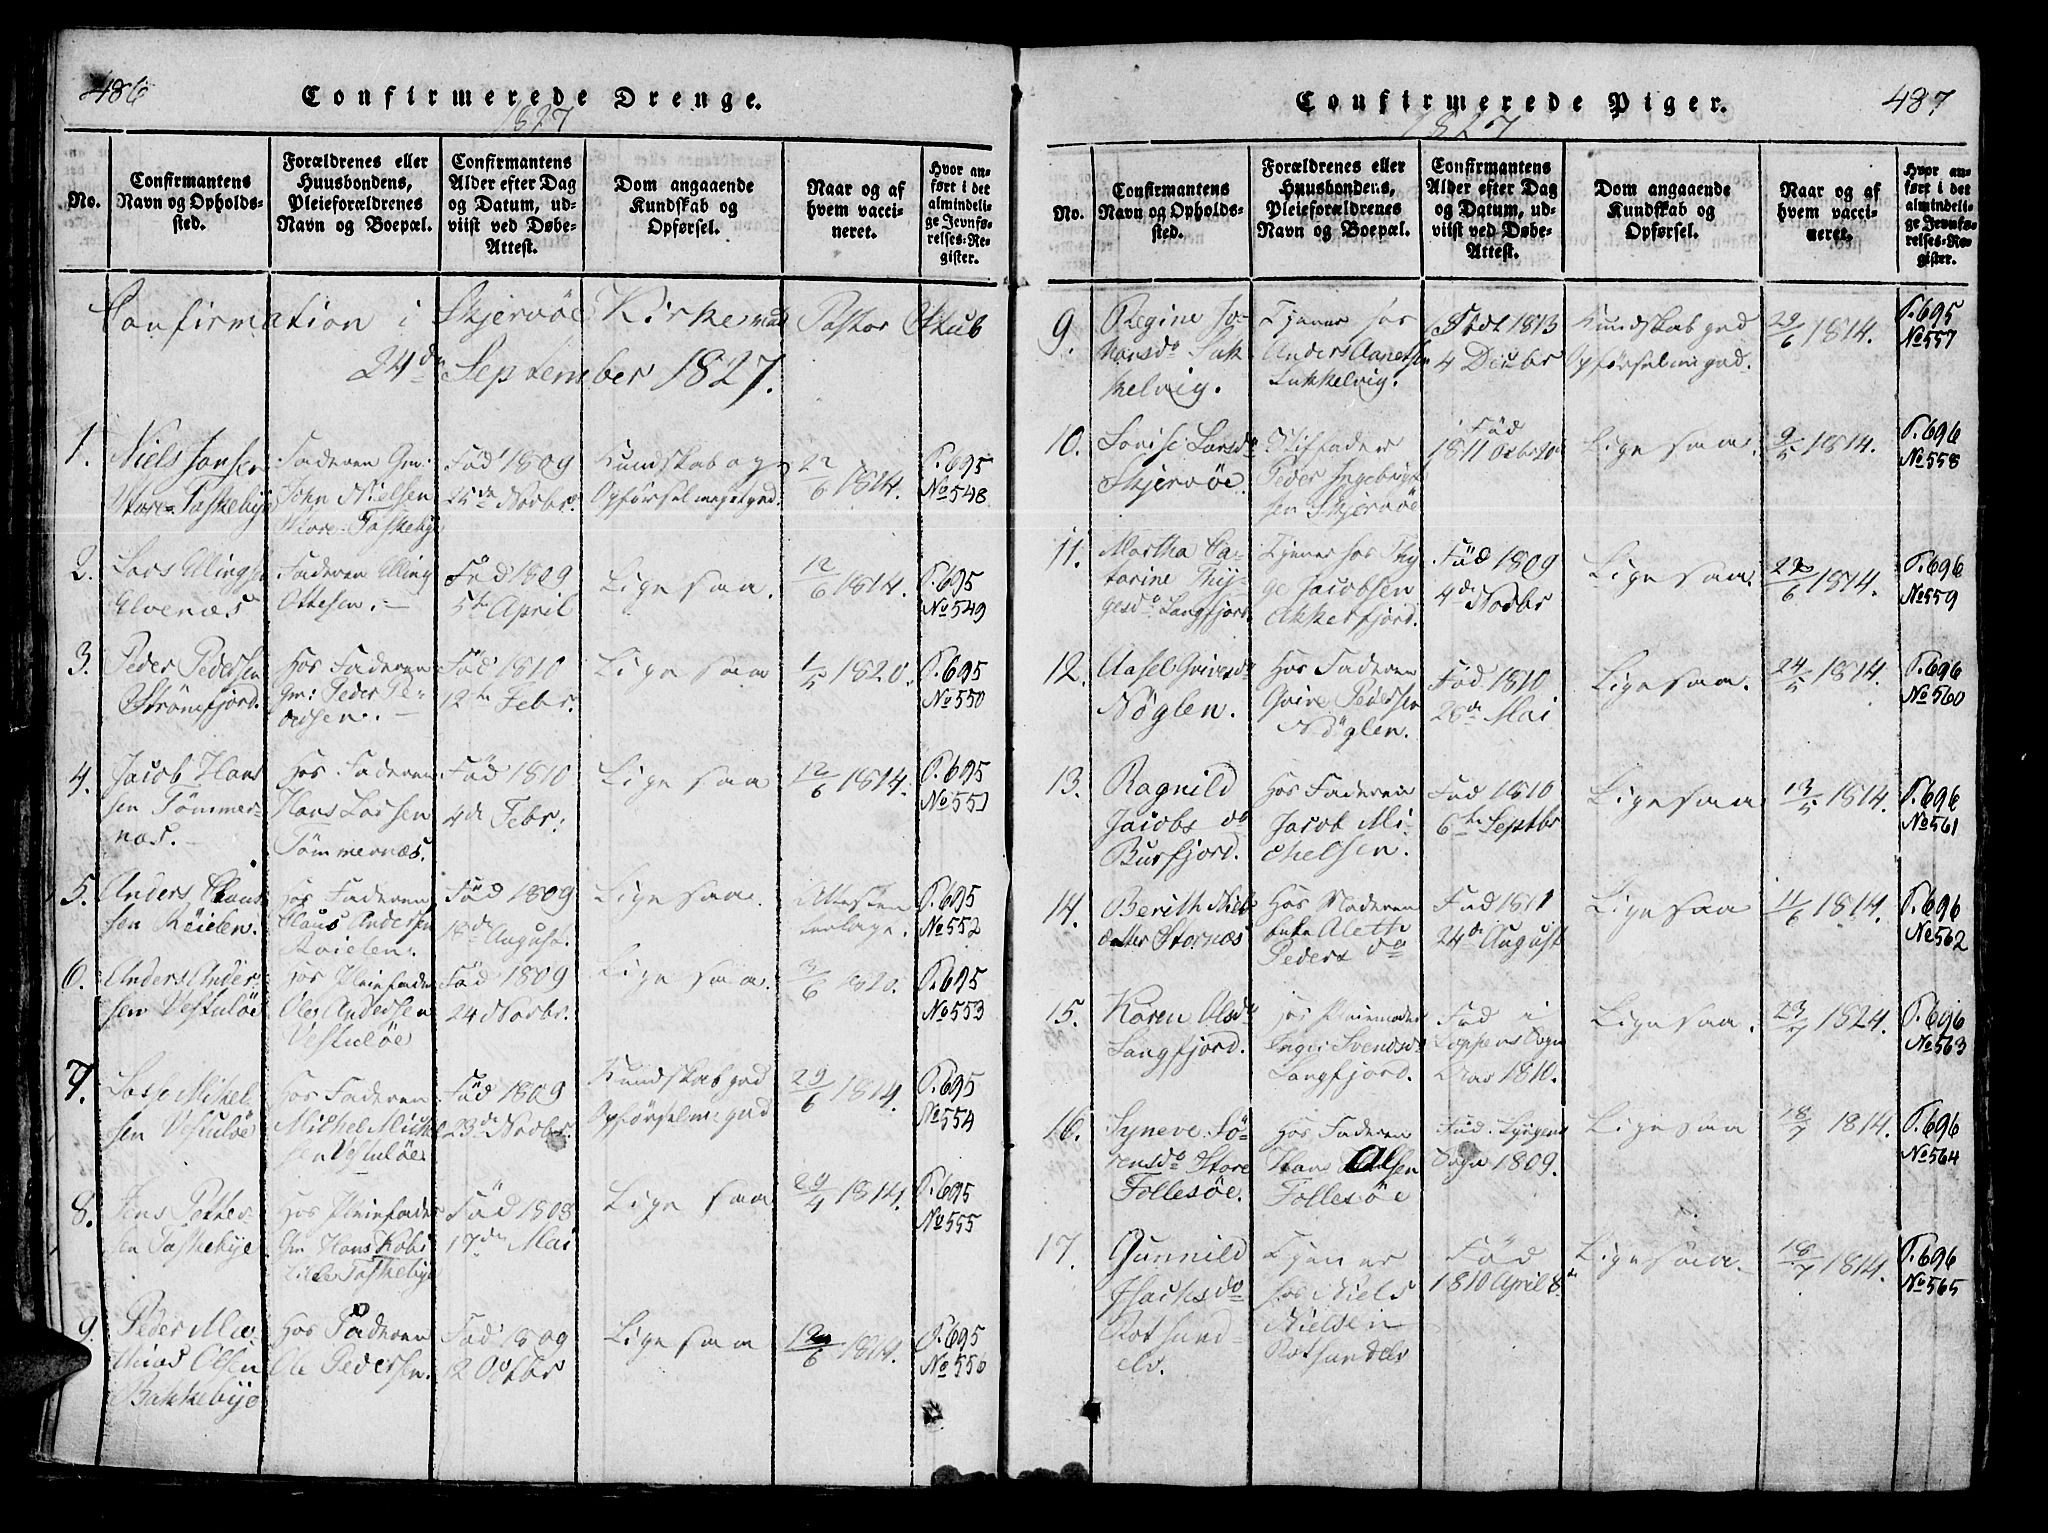 486
Confirmerede Drenge.
1827
No.
Confirmantens
Navn og Opholds-
sted.
Forældrenes eller
Huusbondens,
Pleieforældrenes
Navn og Boepæl.
Confirmantens
Alder efter Dag
og Datum, ud-
viist ved Døbe-
Attest.
Dom angaaende
Kundskab og
Opførsel.
Naar og af
hvem vacci-
neret.
Hvor an-
ført i det
almindeli-
ge Jevnfø-
relses-Re-
gister.
Confirmation i Skjervöe Kirke ved Pastor Stub
24de September 1827.
1.
Niels Jonsen
Store Taskebye
Faderen Gm:
John Nielsen
Store Taskebye
Föd 1809
25de Novbr.
Kundskab og
Opförsel meget god.
22/6 1814.
P. 695
No 548
2.
Lars Ellings
Elvenæs
Faderen Elling
Ottesen.
Föd 1809
5te April
Ligesaa.
12/6 1814.
P. 695
No 549
3.
Peder Pedersen
Strömfjord.
Hos Faderen
Gm: Peder Pe-
dersen.
Föd 1810
12te Febr.
Ligesaa
1/5 1820.
P. 695
No 550
4.
Jacob Han-
sen Tömmer-
næs.
Hos Faderen
Hans Larsen
Tömmernæs.
Föd 1810
4de Febr:
Ligesaa
12/6 1814.
P. 695
No 551
5.
Anders Claus
sen Reielen.
Hos Faderen
Claus Andersen
Reielen.
Föd 1809
18de August.
Ligesaa.
Attesten
P. 695
No 552
6.
Anders Ander-
sen Vestuløe
Hos Pleiefader
Ole Andersen
Vestuløe
Föd 1809
24 Novbr.
Ligesaa.
3/6 1820.
P. 695
No 553
7.
Lasse Mikel
sen Vestuløe
Hos Faderen
Michel Mickel
sen Vestuløe
Föd 1809
23de Novbr.
Kundskab god
Opförselen god
29/6 1814.
P. 695
No 554
8.
Jens Petter
sen Taskebye
Hos Pleiefader
Gm Hans Kobs
Lille Taskebye
Föd 1808
17de Mai
Ligesaa
29/4 1814.
P. 695
No 555
9.
Peder
Olsen
Bakkebye
Hos Faderen
Ole Pedersen.
Föd 1809
12 Octbr
Ligesaa
12/6 1814.
P. 695
No 556
Confirmerede Piger.
487
1827
No.
Confirmantens
Navn og Opholds-
sted.
Forældrenes eller
Huusbondens,
Pleieforældrenes
Navn og Boepæl.
Confirmantens
Alder efter Dag
og Datum, ud-
viist ved Døbe-
Attest.
Dom angaaende
Kundskab og
Opførsel.
Naar og af
hvem vacci-
neret.
Hvor an-
ført i det
almindeli-
ge Jevnfø-
relses-Re-
gister.
9.
Regine Jo-
hansdr Suk
kelvig.
Tjener hos
Anders Aanetsen
Sukkelvig.
Födt 1813
4 Decbr
Kundskab god
Opförselen god.
29/6 1814.
P. 695
No 557
10.
Lovise Larsdr
Skjervöe.
Stiffader
Peder Ingebrigt
sen Skjervöe
Föd
1811 Octbr
Ligesaa.
9/5 1814.
P. 696
No 558
11.
Martha Ca-
tarine Thy-
gesdr Langfjord.
Tjener hos Thy
ge Jacobsen
Akkerfjord.
Föd 1809
4de Novbr
Ligesaa.
22/6 1814.
P. 696
No 559
12.
Aasel Grivesdr
Nöglen.
Hos Faderen
Grive Pedersen
Nöglen.
Föd 1810
28de Mai
Ligesaa.
24/5 1814.
P. 696
No 560
13.
Ragnild
Jacobs dr
Burfjord.
Hos Faderen
Jacob Mi-
chelsen.
Föd 1810
6te Septbr
Ligesaa
13/5 1814.
P. 696
No 561
14.
Berith Niels
datter Stornæs
Hos Moderen
Enke Aleth
Peders dr
Föd 1811
24de August
Ligesaa
11/6 1814.
P. 696
No 562
15.
Karen Olsdr
Langfjord.
Hos Pleiemoder
Inger Svendsdr
Langfjord.
Föd i
Loppens Sogn
Aar 1810.
Ligesaa.
23/7 1824.
P. 696
No 563
16.
Syneve Sö-
rensdr Store
Follesöe.
Hos Faderen
Hans Olsen
Follesöe
Föd Lyngens
Sogn 1809.
Ligesaa
18/7 1814.
P. 696
No 564
17.
Gunnild
Isachsdr
Rotsund-
elv.
Tjener
hos Niels
Nielsen
Rotsundelv
Föd
1810 April 8de
Ligesaa.
18/7 1814.
P. 696
No 565